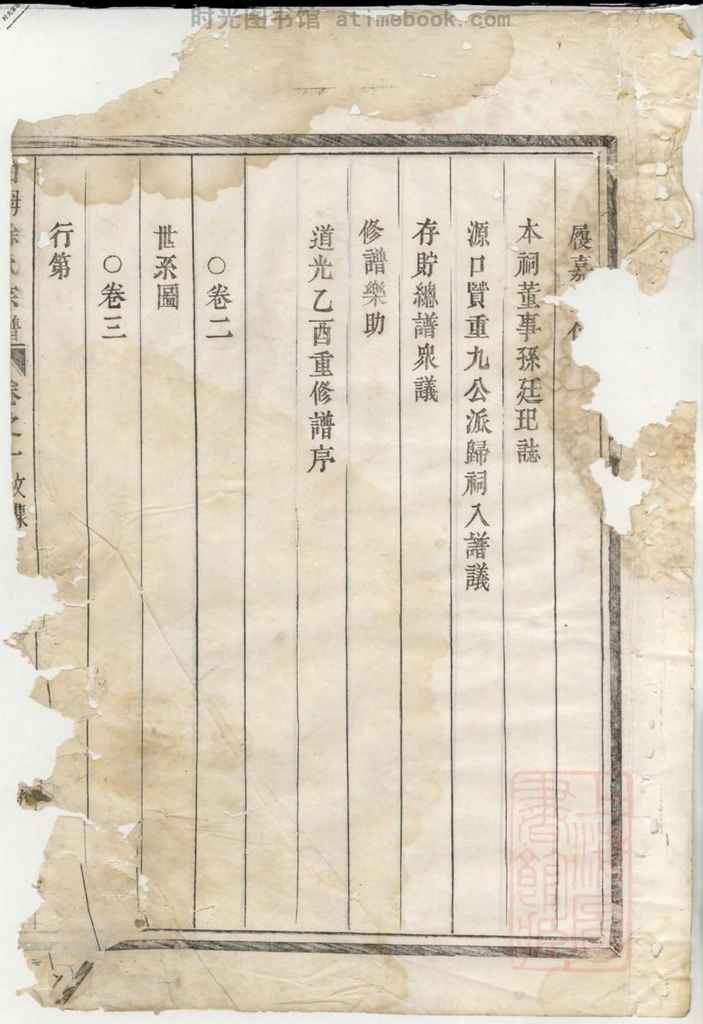 时光图书馆 atimebook.com
履嘉
本祠董事孫廷玘誌
源口贇重九公派歸祠入譜議
存貯總譜衆議
修譜樂助
道光乙酉重修譜序
○卷二
世系圖
○卷三
行第
徐氏宗譜 卷之一